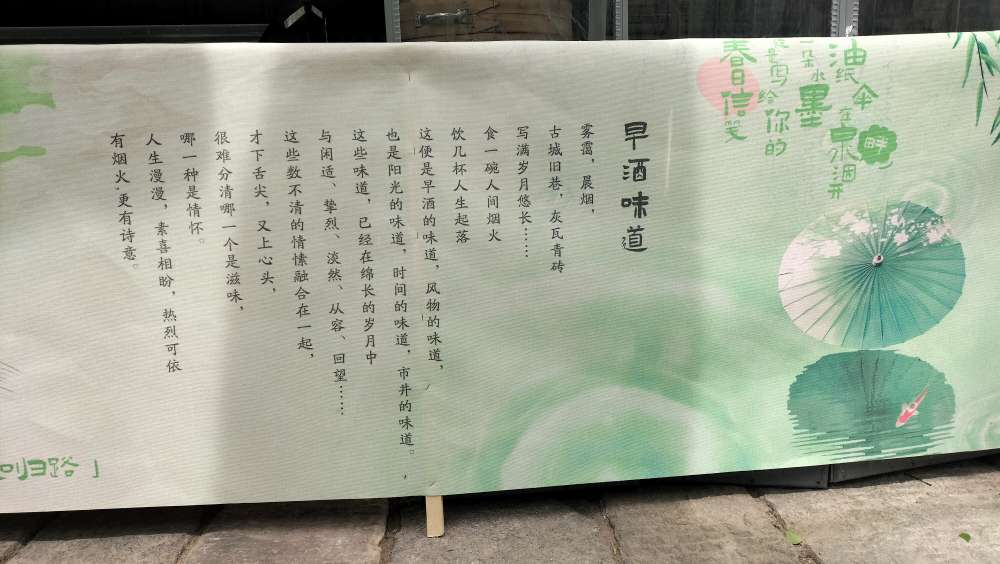 油纸伞在泉洇开
一朵水墨
畔
是写给你的
春日信笺
早酒味道
雾霭，晨烟，
古城旧巷，灰瓦青砖
写满岁月悠长……
食一碗人间烟火
饮几杯人生起落
这便是早酒的味道，风物的味道，
也是阳光的味道，时间的味道，市井的味道。
这些味道，已经在绵长的岁月中
与闲适、挚烈、淡然、从容、回望……
这些数不清的情愫融合在一起，
才下舌尖，又上心头，
很难分清哪一个是滋味，
哪一种是情怀。
人生漫漫，素喜相盼，热烈可依
有烟火，更有诗意。
归路」